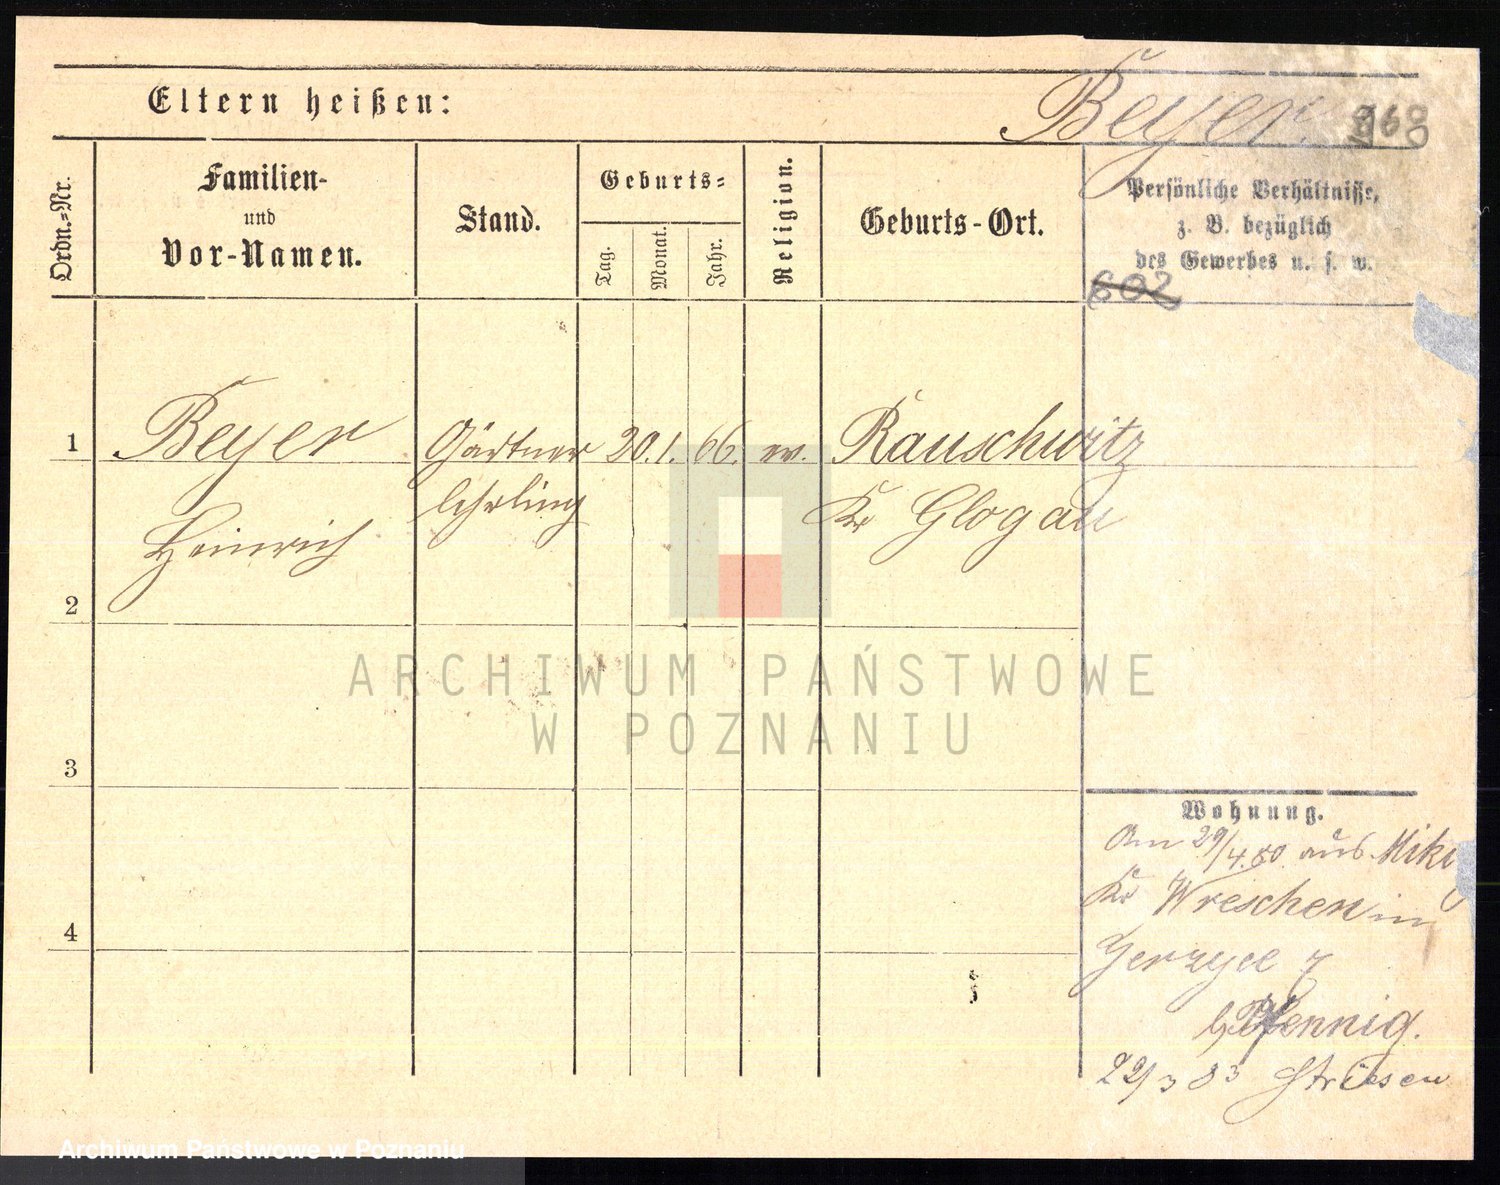 Eltern heißen:
Beyer. 868
Ordn.=Nr.
Familien-
und
Vor-Namen.
Stand.
Geburts=
Tag.
Monat.
Jahr.
Religion.
Geburts-Ort.
Persönliche Verhältnisse,
z. B. bezüglich
des Gewerbes u. s. w.
602
1 Beyer Gärtner 20. 1. 66. ev. Rauschwitz
lehrling Kr Glogau
Heinrich
2
3
4
Wohnung.
Am 29/4.80. aus
Kr Wreschen in
Jerzyce 7
b/Pfennig.
22/3 83 Striesen
ARCHIWUM PAŃSTWOWE
W POZNANIU
Archiwum Państwowe w Poznaniu